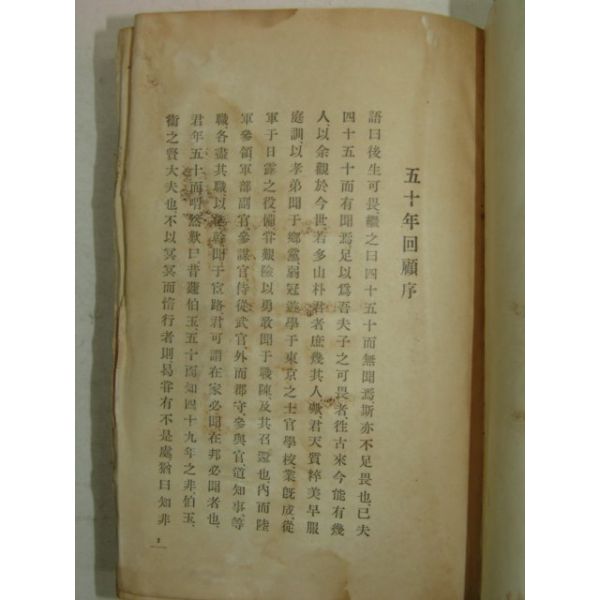 五十年回顧序
語曰後生可畏、繼之曰四十五十而無聞焉、斯亦不足畏也已、夫
四十五十而有聞焉、足以爲吾夫子之可畏者、往古來今能有幾
人、以余觀於今世、若多山朴君者、庶幾其人歟、君天質粹美、早服
庭訓、以孝弟聞于鄕黨、弱冠遊學于東京之士官學校、業旣成、從
軍于日露之役、備甞艱險、以勇敢聞于戰陳、及其召還也、內而陸
軍參領軍部副官參謀官侍從武官、外而郡守、參與官道知事、等
職、各盡其職、以 幹聞于宦路、君可謂在家必聞在邦必聞者也、
君年五十、而喟然歎曰、昔蘧伯玉、五十而知四十九年之非、伯玉、
衞之賢大夫也、不以冥冥而惰行者、則曷甞有不是處、猶曰知非
2